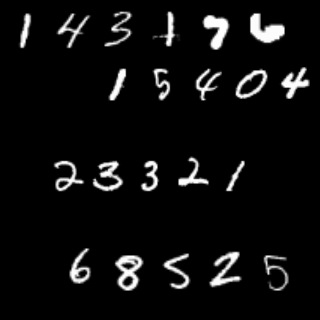 143176
15404
23321
68525